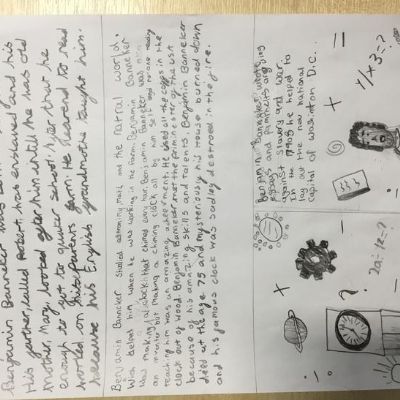 Benjamin Banneker was
His father, called Robert, has enslaved and his
Mother, Mary, looked after him until he was old
enough to go to quaker school. After that he
worked on his Parents farm. He learend to read
because his English grandmother taught him.
Benjamin Banneker Studied astronimy, maths and the natral world
Wich helped him when he was working in the farm. Benjamin Banneker
was making a clock that chimed every hour. Benjamin Banneker was n't
an inventer but making a chiming clock all by him self and no one
teaching him was an amazing acheivement. He used all the coggs in the
clock out of wood. Benjamin Banneker met the priminester of the USA
because of his amazing skills and talents. Benjamin Banneker
died at the age 75 and mysteriously his House burned down
and his famous clock was sadley destroed in the fire.
Benjamin Banneker wrote
essays and pamphlets arguing
against slavery and war
In the 1790s he helped to
lay out the new national
capital of Washinton D.C...
+ =
1/1 + 3 = ?
+ ?